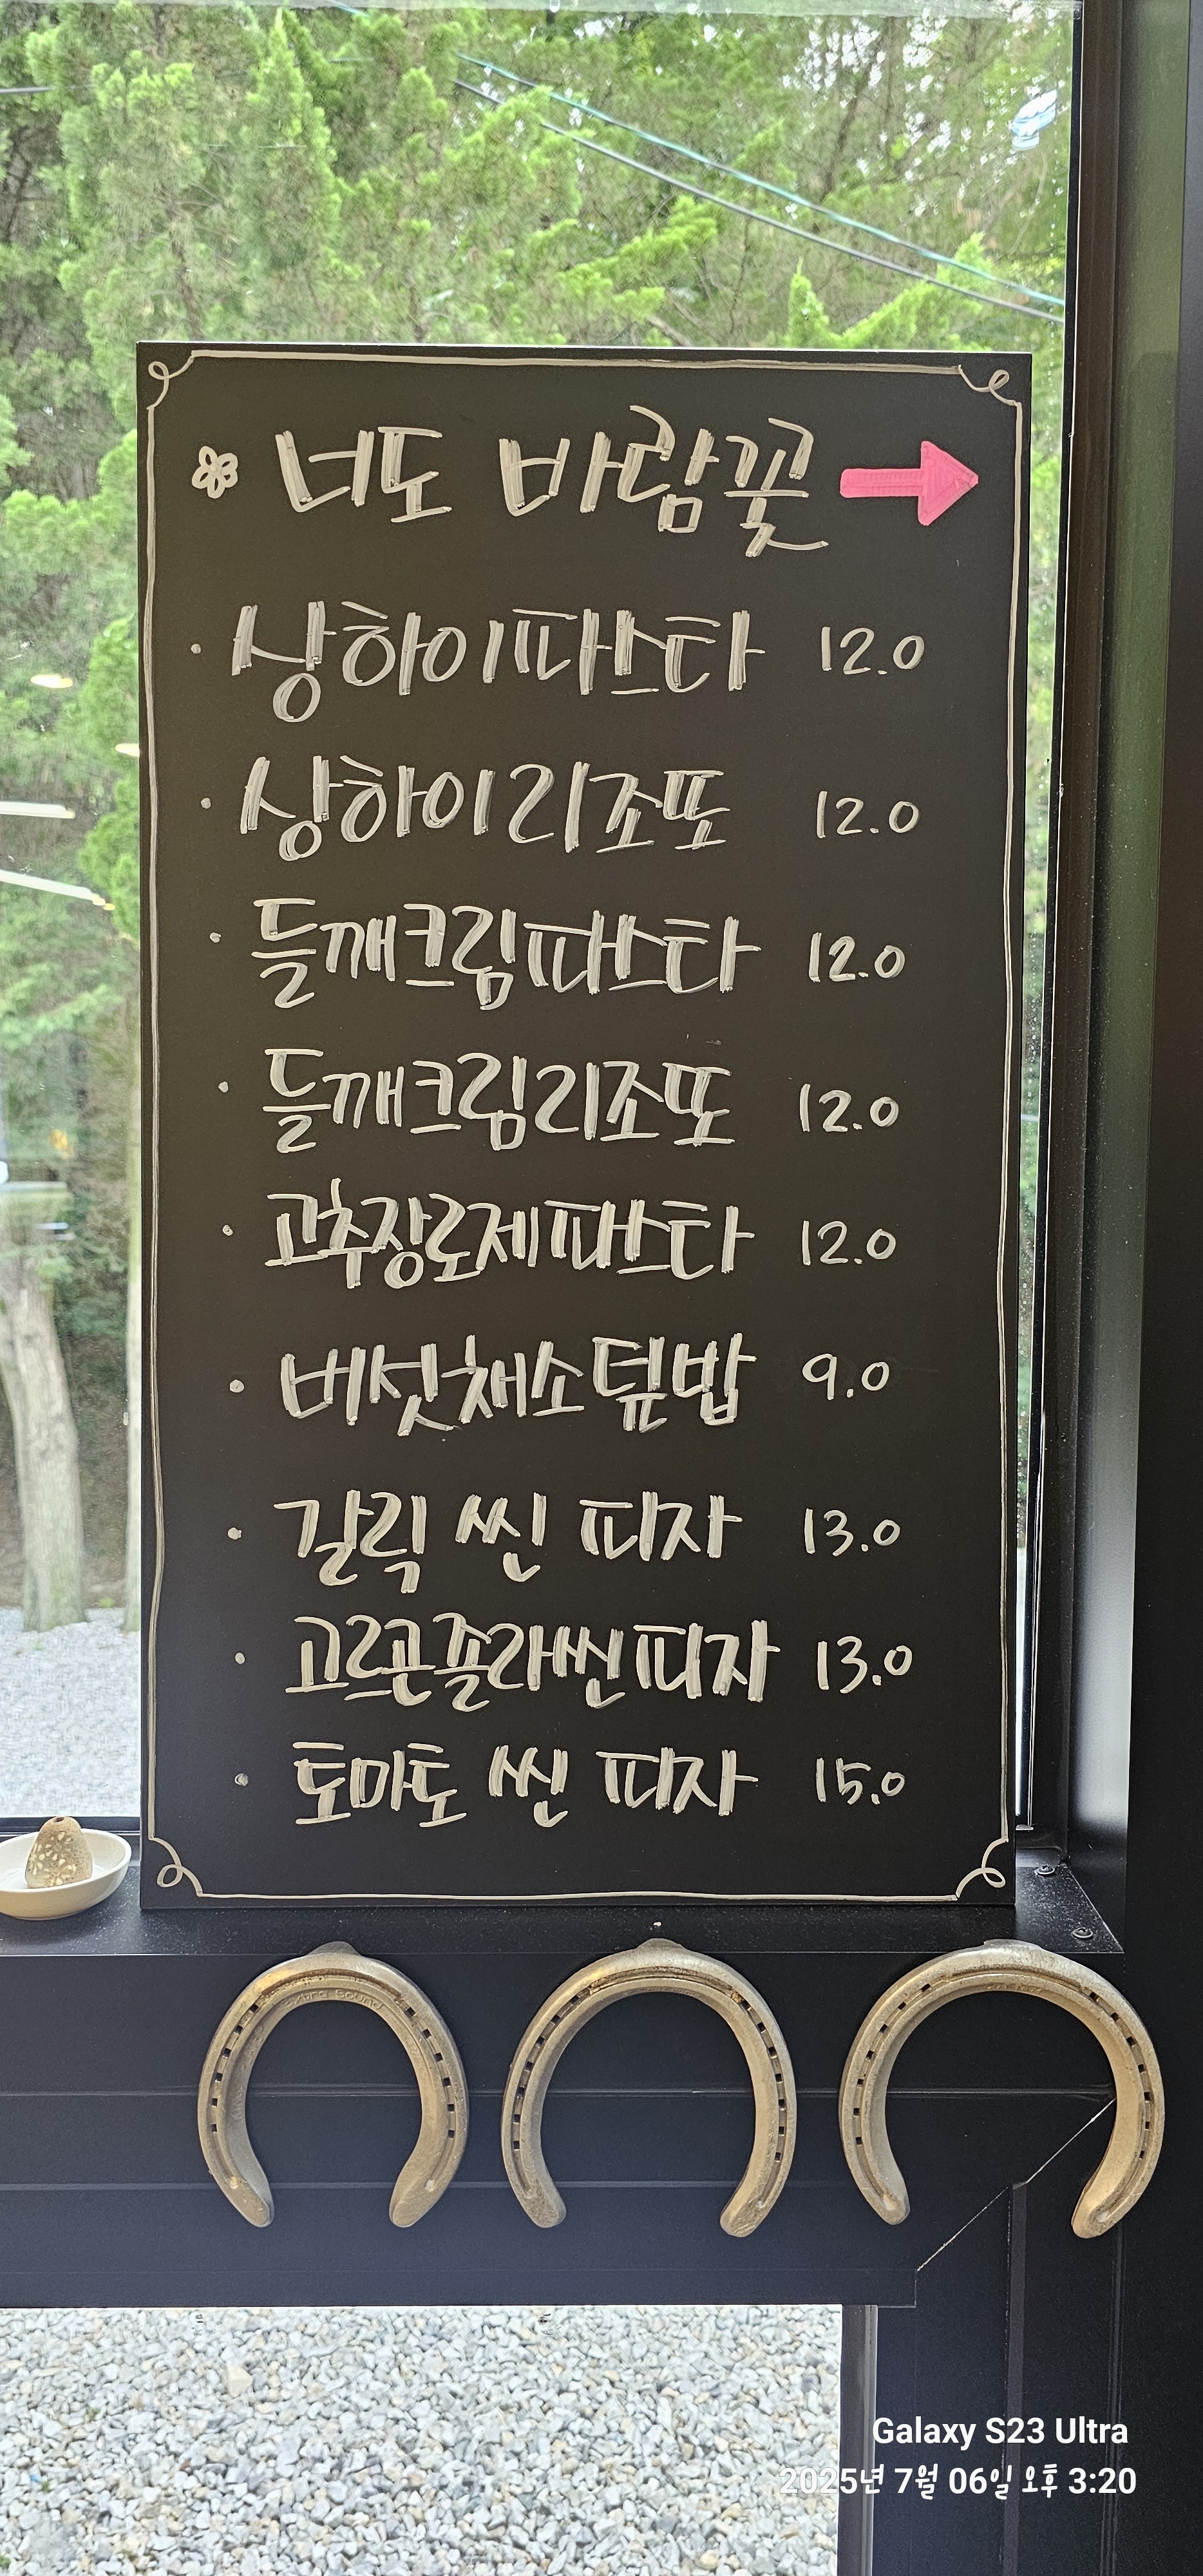 너도 바람꽃
· 상하이파스타 12.0
· 상하이리조또 12.0
· 들깨크림파스타 12.0
· 들깨크림리조또 12.0
· 고추장로제파스타 12.0
· 버섯채소덮밥 9.0
· 갈릭 씬 피자 13.0
· 고르곤졸라씬피자 13.0
· 토마토 씬 피자 15.0
Galaxy S23 Ultra
2025년 7월 06일 오후 3:20